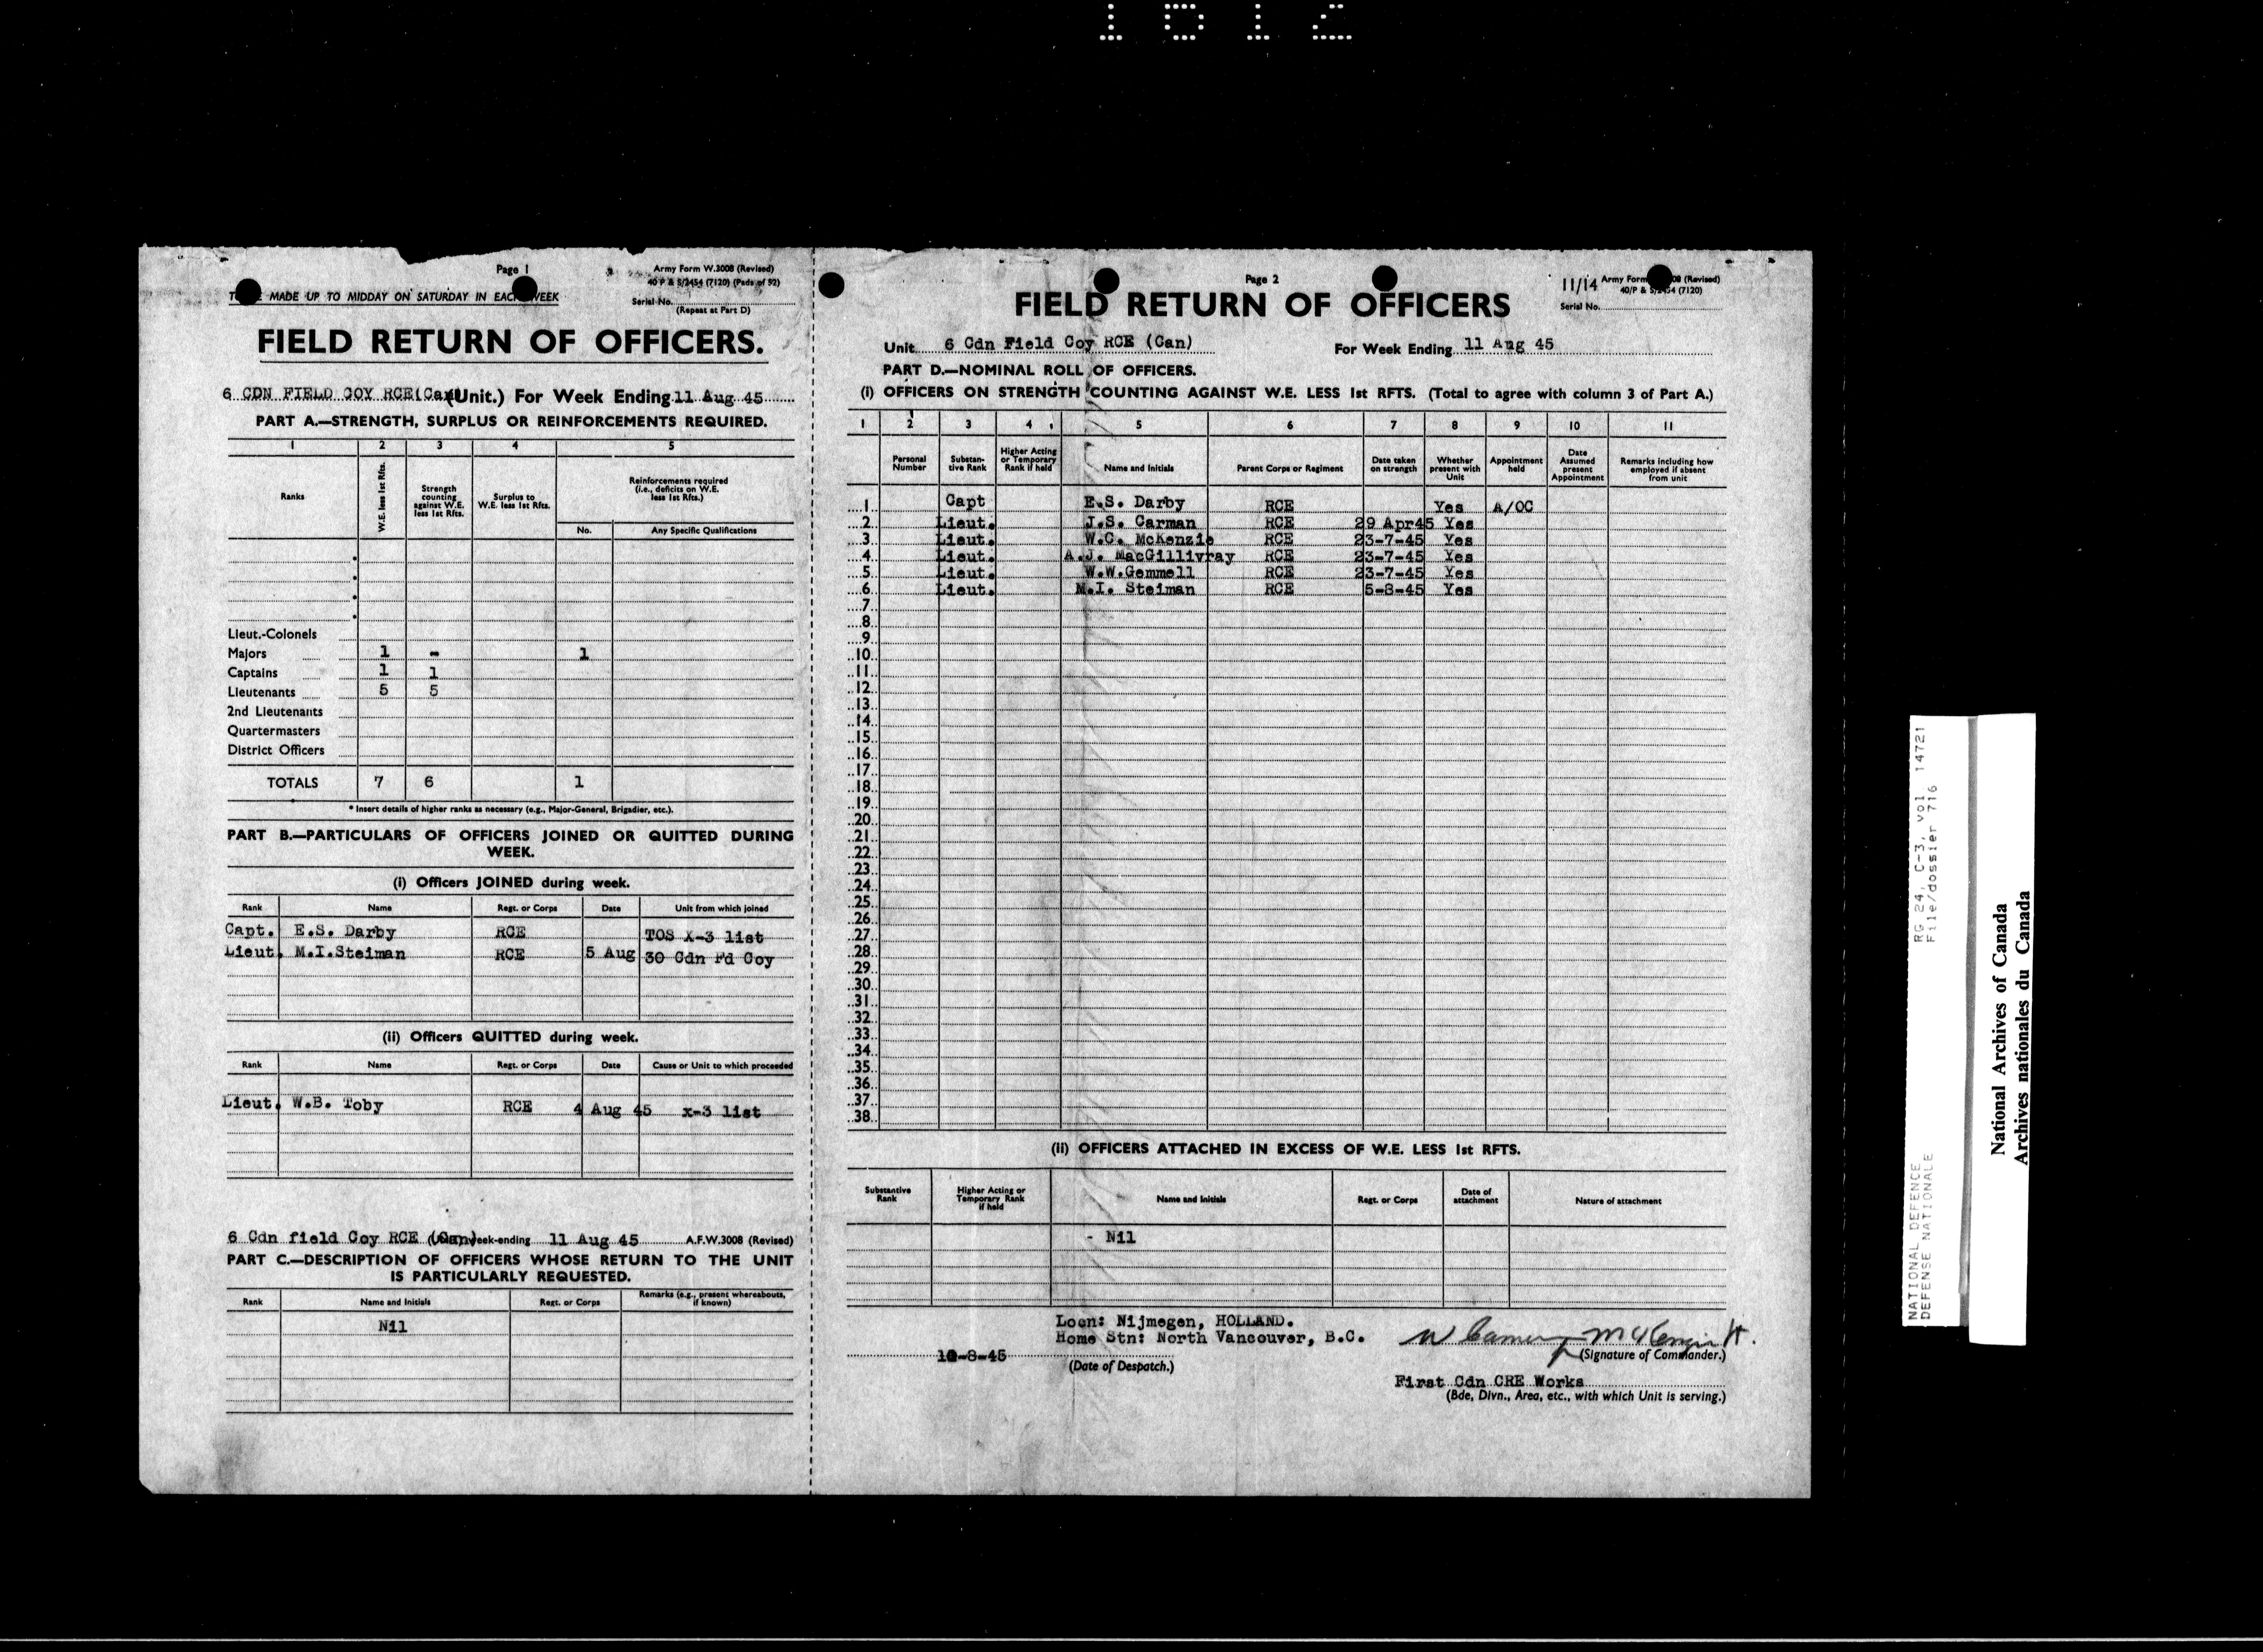 1512
Page 1
Army Form W.3008 (Revised)
40 P & S/2454 (7120) (Pads of 52)
MADE UP TO MIDDAY ON SATURDAY IN EACH WEEK
Serial No.
(Repeat at Part D)
FIELD RETURN OF OFFICERS.
6 CDN FIELD COY RCE(Can) (Unit.) For Week Ending 11 Aug 45
PART A.—STRENGTH, SURPLUS OR REINFORCEMENTS REQUIRED.
1 2 3 4 5
Ranks
W.E. less 1st Rfts.
Strength counting against W.E. less 1st Rfts.
Surplus to W.E. less 1st Rfts.
Reinforcements required (i.e., deficits on W.E. less 1st Rfts.)
No. Any Specific Qualifications
Lieut.-Colonels
Majors 1 - 1
Captains 1 1
Lieutenants 5 5
2nd Lieutenants
Quartermasters
District Officers
TOTALS 7 6 1
* Insert details of higher ranks as necessary (e.g., Major-General, Brigadier, etc.).
PART B.—PARTICULARS OF OFFICERS JOINED OR QUITTED DURING
WEEK.
(i) Officers JOINED during week.
Rank Name Regt. or Corps Date Unit from which joined
Capt. E.S. Darby RCE TOS X-3 list
Lieut. M.I.Steiman RCE 5 Aug 30 Cdn Fd Coy
(ii) Officers QUITTED during week.
Rank Name Regt. or Corps Date Cause or Unit to which proceeded
Lieut. W.B. Toby RCE 4 Aug 45 x-3 list
6 Cdn field Coy RCE (Can) Week-ending 11 Aug 45 A.F.W.3008 (Revised)
PART C.—DESCRIPTION OF OFFICERS WHOSE RETURN TO THE UNIT
IS PARTICULARLY REQUESTED.
Rank Name and Initials Regt. or Corps Remarks (e.g., present whereabouts, if known)
Nil
Page 2
11/14
Army Form (Revised)
40/P & S/2454 (7120)
Serial No.
FIELD RETURN OF OFFICERS
Unit 6 Cdn Field Coy RCE (Can) For Week Ending 11 Aug 45
PART D.—NOMINAL ROLL OF OFFICERS.
(i) OFFICERS ON STRENGTH COUNTING AGAINST W.E. LESS 1st RFTS. (Total to agree with column 3 of Part A.)
1 2 3 4 5 6 7 8 9 10 11
Personal Number
Substantive Rank
Higher Acting or Temporary Rank if held
Name and Initials
Parent Corps or Regiment
Date taken on strength
Whether present with Unit
Appointment held
Date Assumed present Appointment
Remarks including how employed if absent from unit
1 Capt E.S. Darby RCE Yes A/OC
2 Lieut. J.S. Carman RCE 29 Apr45 Yes
3 Lieut. W.C. McKenzie RCE 23-7-45 Yes
4 Lieut. A.J. MacGillivray RCE 23-7-45 Yes
5 Lieut. W.W.Gemmell RCE 23-7-45 Yes
6 Lieut. M.I. Steiman RCE 5-8-45 Yes
7
8
9
10
11
12
13
14
15
16
17
18
19
20
21
22
23
24
25
26
27
28
29
30
31
32
33
34
35
36
37
38
(ii) OFFICERS ATTACHED IN EXCESS OF W.E. LESS 1st RFTS.
Substantive Rank
Higher Acting or Temporary Rank if held
Name and Initials
Regt. or Corps
Date of attachment
Nature of attachment
- Nil
Locn: Nijmegen, HOLLAND.
Home Stn: North Vancouver, B.C.
10-8-45
(Date of Despatch.)
(Signature of Commander.)
First Cdn CRE Works
(Bde, Divn., Area, etc., with which Unit is serving.)
NATIONAL DEFENCE RG 24, C-3, vol 14721
DEFENSE NATIONALE File/dossier 716
National Archives of Canada
Archives nationales du Canada